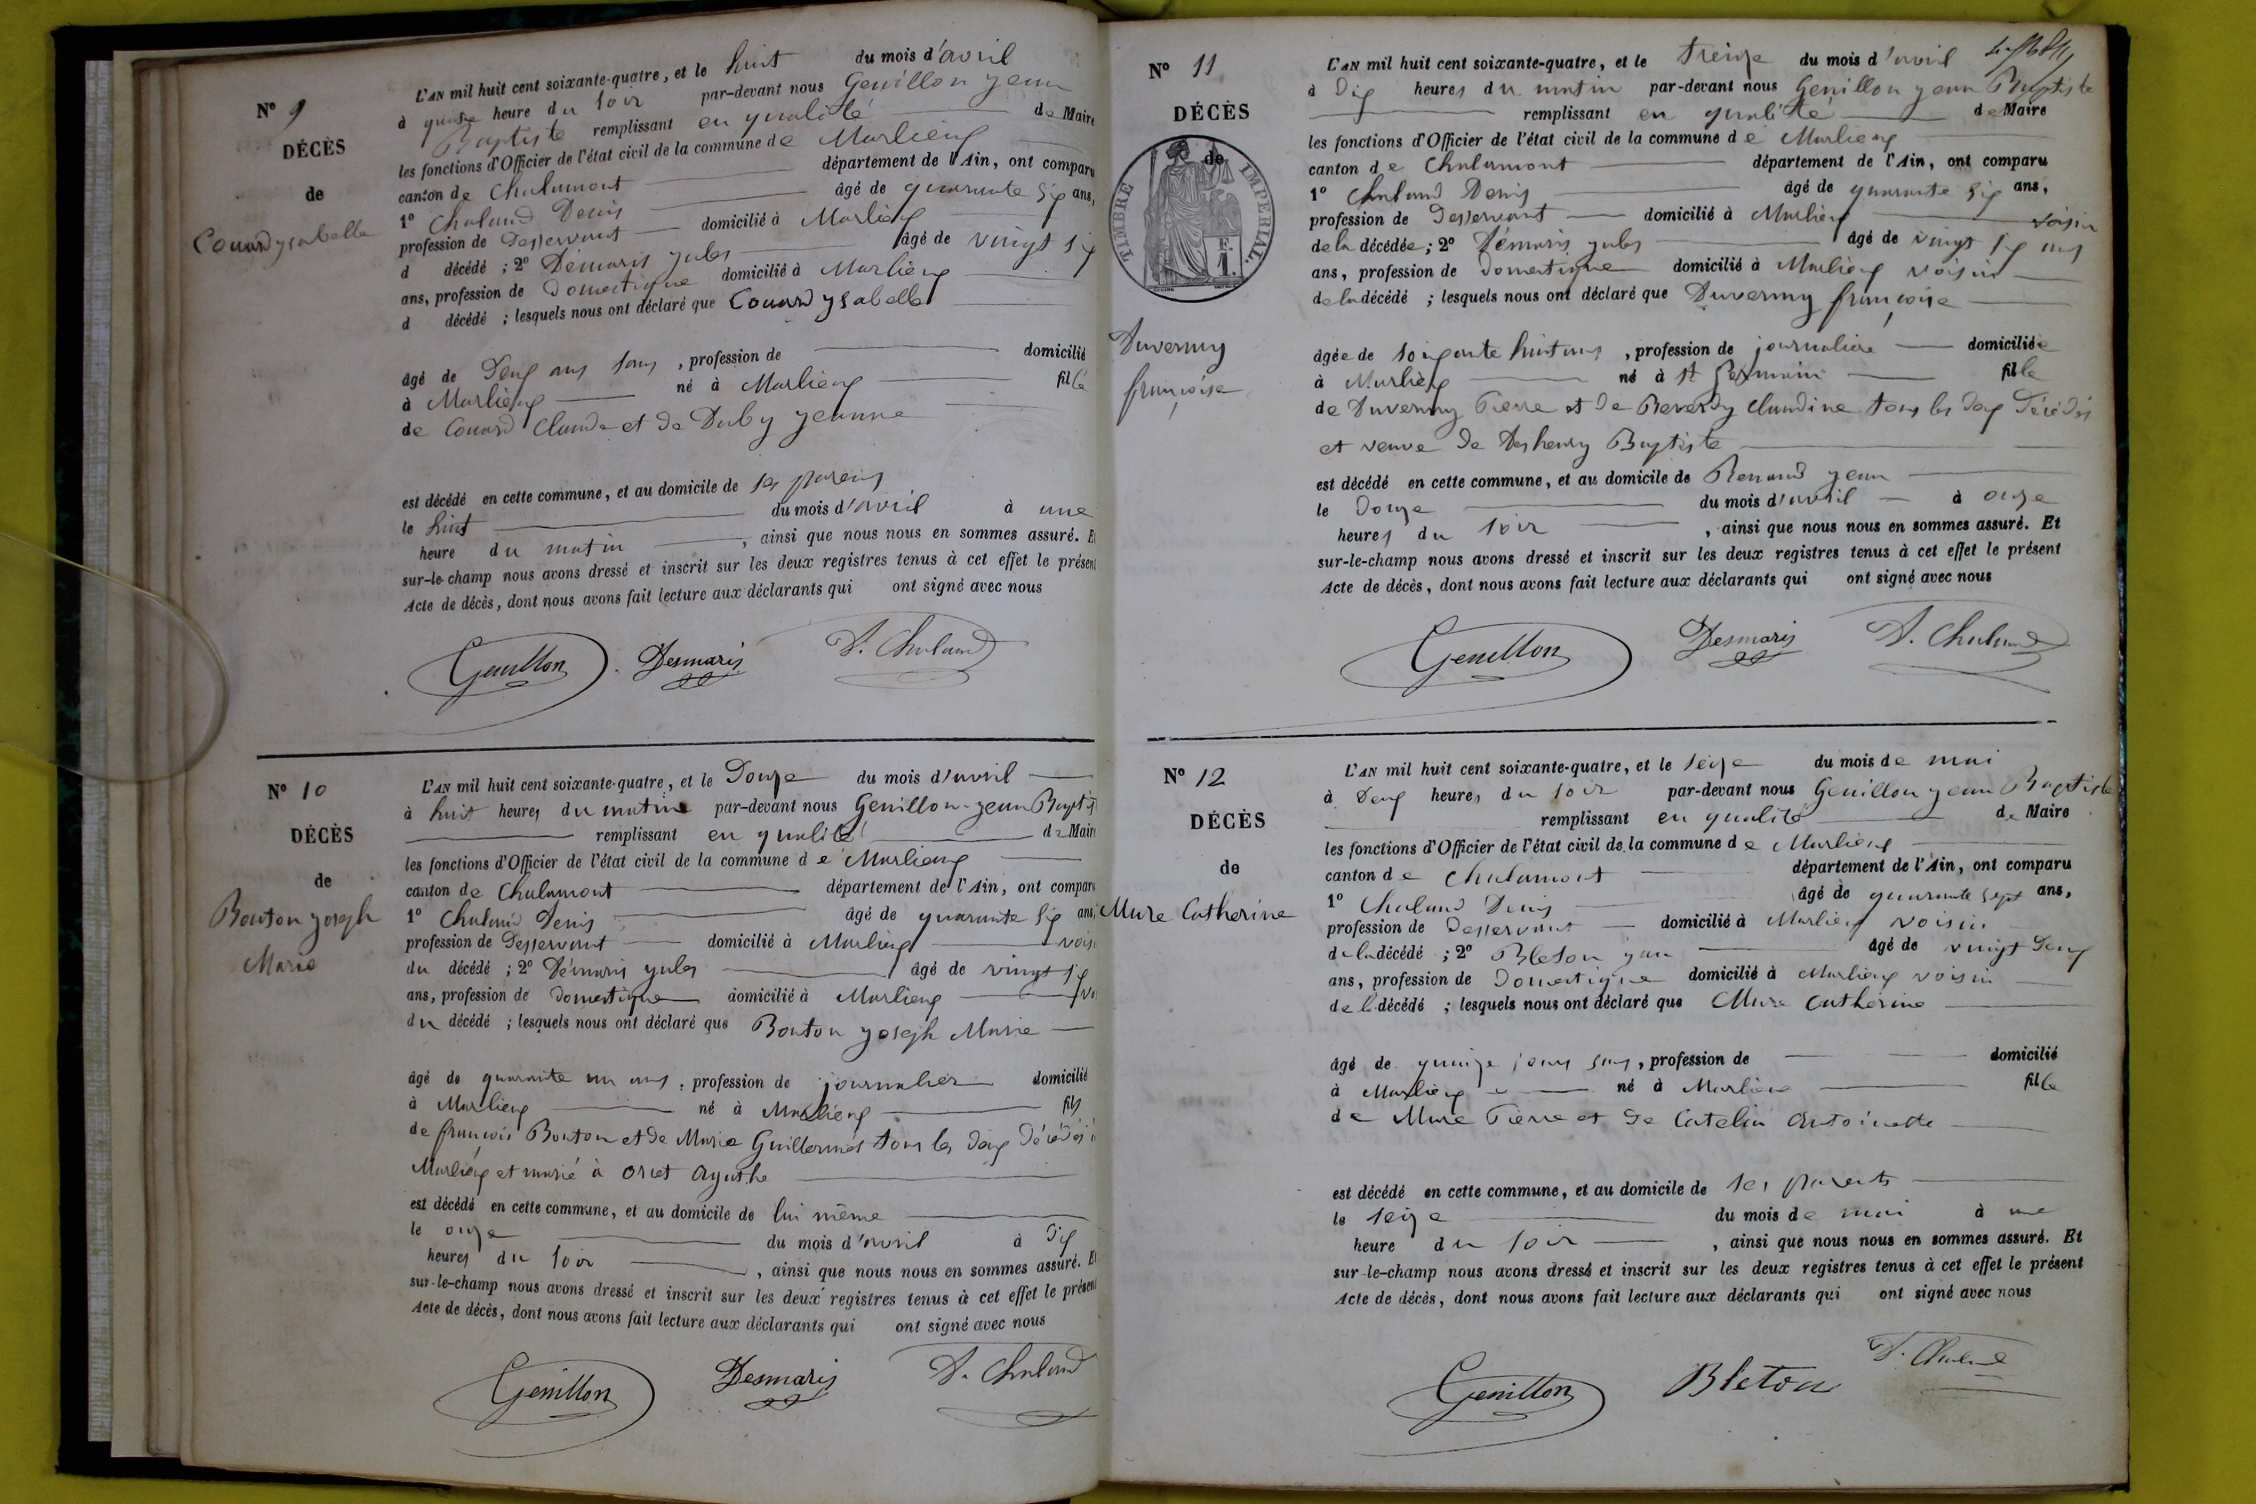 N° 9
DÉCÈS
de
Couard ysabelle
L'AN mil huit cent soixante-quatre, et le huit du mois d'avril
à quatre heure du soir par-devant nous Genillon jean
Baptiste remplissant en qualité de Maire
les fonctions d'Officier de l'état civil de la commune de Marlieux
canton de Chalamont département de l'Ain, ont comparu
1° Chaland Denis âgé de quarante six ans,
profession de Desservant domicilié à Marlieux
d décédé ; 2° Démaris jules âgé de vingt six
ans, profession de domestique domicilié à Marlieux
d décédé ; lesquels nous ont déclaré que Couard ysabelle
âgé de Deux ans sans , profession de domicilié
à Marlieux né à Marlieux fille
de Couard Claude et de Duby jeanne
est décédé en cette commune, et au domicile de ses parens
le huit du mois d'avril à une
heure du matin , ainsi que nous nous en sommes assuré. Et
sur-le-champ nous avons dressé et inscrit sur les deux registres tenus à cet effet le présent
Acte de décès, dont nous avons fait lecture aux déclarants qui ont signé avec nous
Genillon Desmaris D. Chaland
N° 10
DÉCÈS
de
Bouton joseph
Marie
L'AN mil huit cent soixante-quatre, et le Douze du mois d'avril
à huit heures du matin par-devant nous Genillon jean Baptiste
remplissant en qualité de Maire
les fonctions d'Officier de l'état civil de la commune de Marlieux
canton de Chalamont département de l'Ain, ont comparu
1° Chaland Denis âgé de quarante six ans,
profession de Desservant domicilié à Marlieux voisin
du décédé ; 2° Démaris jules âgé de vingt six
ans, profession de domestique domicilié à Marlieux
du décédé ; lesquels nous ont déclaré que Bouton joseph Marie
âgé de quarante un ans , profession de journalier domicilié
à Marlieux né à Marlieux fils
de françois Bouton et de Marie Guillermet tous les deux décédés à
Marlieux et marié à Oriet Agathe
est décédé en cette commune, et au domicile de lui même
le onze du mois d'avril à dix
heures du soir , ainsi que nous nous en sommes assuré. Et
sur-le-champ nous avons dressé et inscrit sur les deux registres tenus à cet effet le présent
Acte de décès, dont nous avons fait lecture aux déclarants qui ont signé avec nous
Genillon Desmaris D. Chaland
N° 11
DÉCÈS
de
TIMBRE IMPÉRIAL
Duvernay
françoise
L'AN mil huit cent soixante-quatre, et le treize du mois d'avril
à Dix heures du matin par-devant nous Genillon jean Baptiste
remplissant en qualité de Maire
les fonctions d'Officier de l'état civil de la commune de Marlieux
canton de Chalamont département de l'Ain, ont comparu
1° Chaland Denis âgé de quarante six ans,
profession de Desservant domicilié à Marlieux voisin
de la décédée ; 2° Démaris jules âgé de vingt six ans
ans, profession de domestique domicilié à Marlieux voisin
de la décédé ; lesquels nous ont déclaré que Duvernay françoise
âgée de soixante huit ans , profession de journalière domiciliée
à Marlieux né à St Germain fille
de Duvernay Pierre et de Reverdy Claudine tous les deux décédés
et veuve de Deshenry Baptiste
est décédé en cette commune, et au domicile de Renaud jean
le Douze du mois d'avril à onze
heures du soir , ainsi que nous nous en sommes assuré. Et
sur-le-champ nous avons dressé et inscrit sur les deux registres tenus à cet effet le présent
Acte de décès, dont nous avons fait lecture aux déclarants qui ont signé avec nous
Genillon Desmaris D. Chaland
N° 12
DÉCÈS
de
Mure Catherine
L'AN mil huit cent soixante-quatre, et le seize du mois de mai
à Deux heures du soir par-devant nous Genillon jean Baptiste
remplissant en qualité de Maire
les fonctions d'Officier de l'état civil de la commune de Marlieux
canton de Chalamont département de l'Ain, ont comparu
1° Chaland Denis âgé de quarante sept ans,
profession de Desservant domicilié à Marlieux voisin
de la décédé ; 2° Bleton jean âgé de vingt Deux
ans, profession de Domestique domicilié à Marlieux voisin
de la décédé ; lesquels nous ont déclaré que Mure Catherine
âgé de quinze jours sans , profession de domicilié
à Marlieux né à Marlieux fille
de Mure Pierre et de Catelin Antoinette
est décédé en cette commune, et au domicile de ses parents
le seize du mois de mai à une
heure du soir , ainsi que nous nous en sommes assuré. Et
sur-le-champ nous avons dressé et inscrit sur les deux registres tenus à cet effet le présent
Acte de décès, dont nous avons fait lecture aux déclarants qui ont signé avec nous
Genillon Bleton D. Chaland